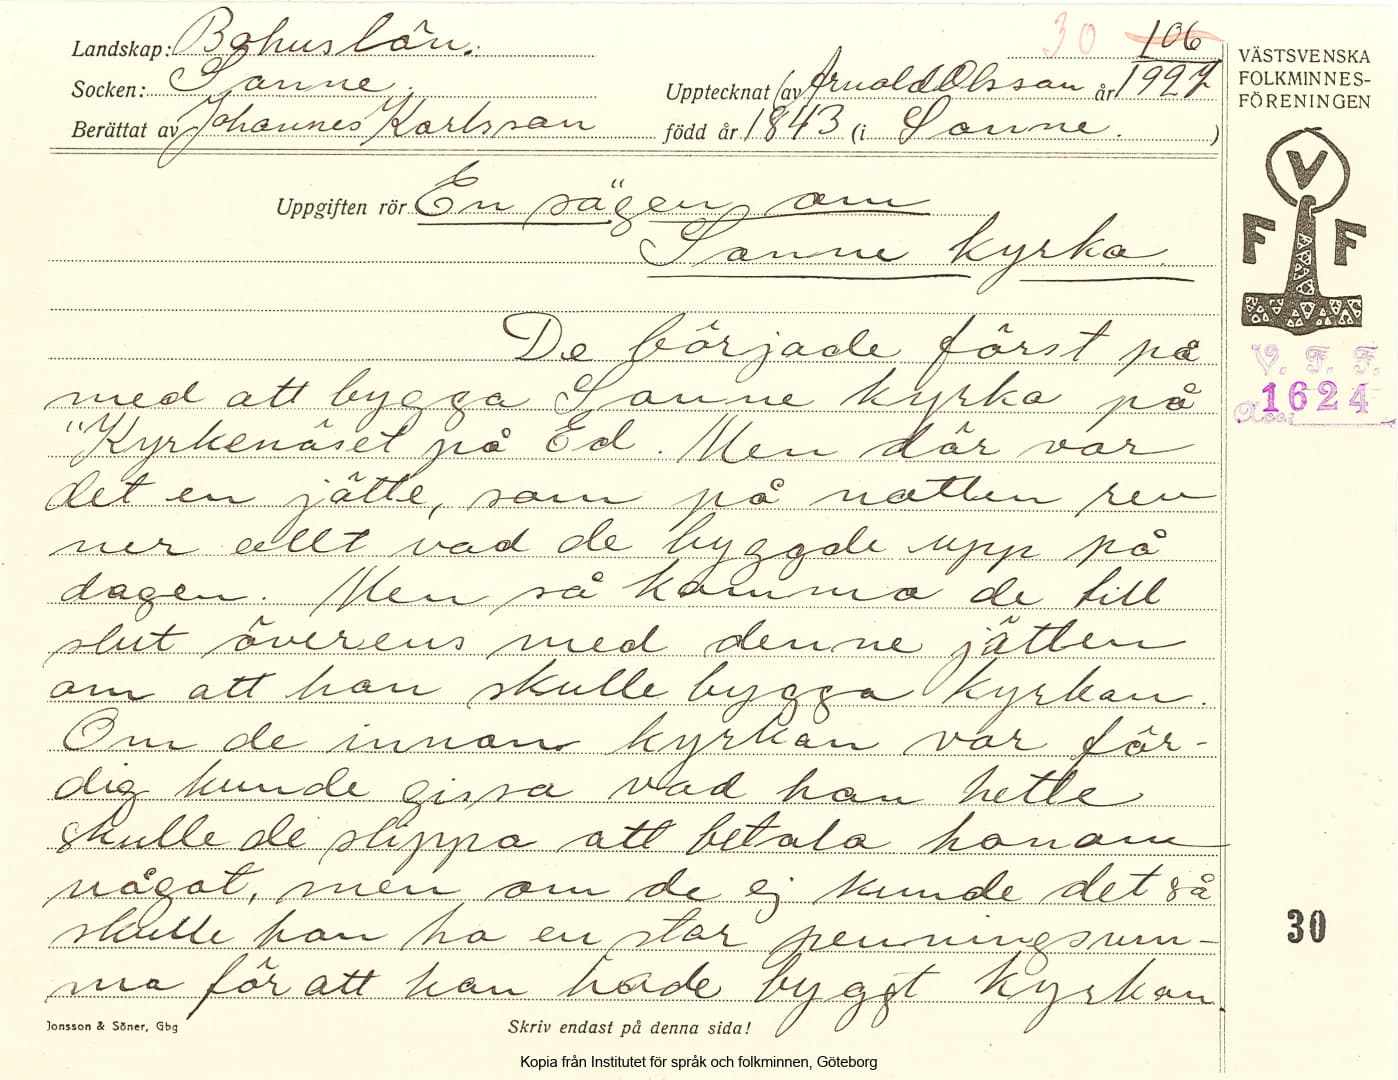 30 106
Landskap: Bohuslän.
Socken: Sanne.
Upptecknat av Arnold Olsson år 1927
Berättat av Johannes Karlsson född år 1843 (i Sanne. )
VÄSTSVENSKA
FOLKMINNES-
FÖRENINGEN
V
F F
V. F. F.
1624
Acc.
Uppgiften rör En sägen om
Sanne kyrka.
De började först på
med att bygga Sanne kyrka på
"Kyrkenäset på Ed. Men där var
det en jätte, som på natten rev
ner allt vad de byggde upp på
dagen. Men så komma de till
slut överens med denne jätten
om att han skulle bygga kyrkan.
Om de innan kyrkan var fär-
dig kunde gissa vad han hette
skulle de slippa att betala honom
något, men om de ej kunde det så
skulle han ha en stor penningsum-
ma för att han hade byggt kyrkan
30
Jonsson & Söner, Gbg
Skriv endast på denna sida!
Kopia från Institutet för språk och folkminnen, Göteborg